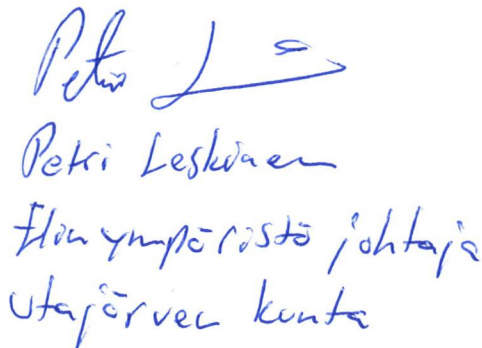 Petri L
Petri Leskinen
Elinympäristö johtaja
Utajärven kunta